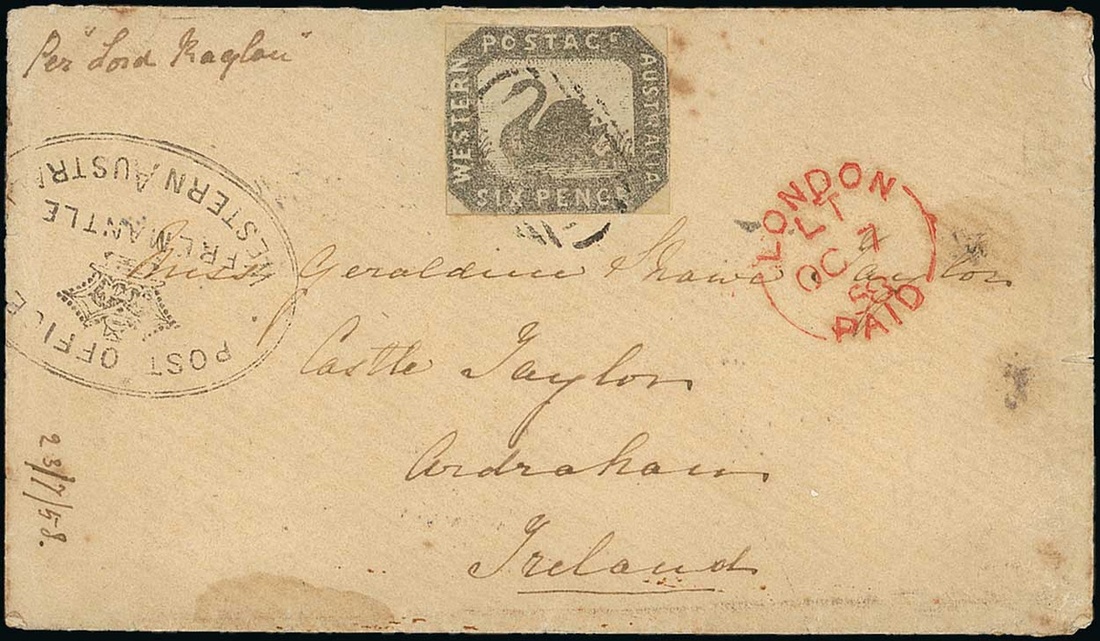 Per "Lord Raglan"
POSTAGE
WESTERN
AUSTRALIA
SIX PENC
POST OFFICE
FREMANTLE
WESTERN AUSTR
LONDON
OC 7
PAID
Miss Geraldine Shawe Taylor
Castle Taylor
Ardrahan
Ireland
23/7/58.